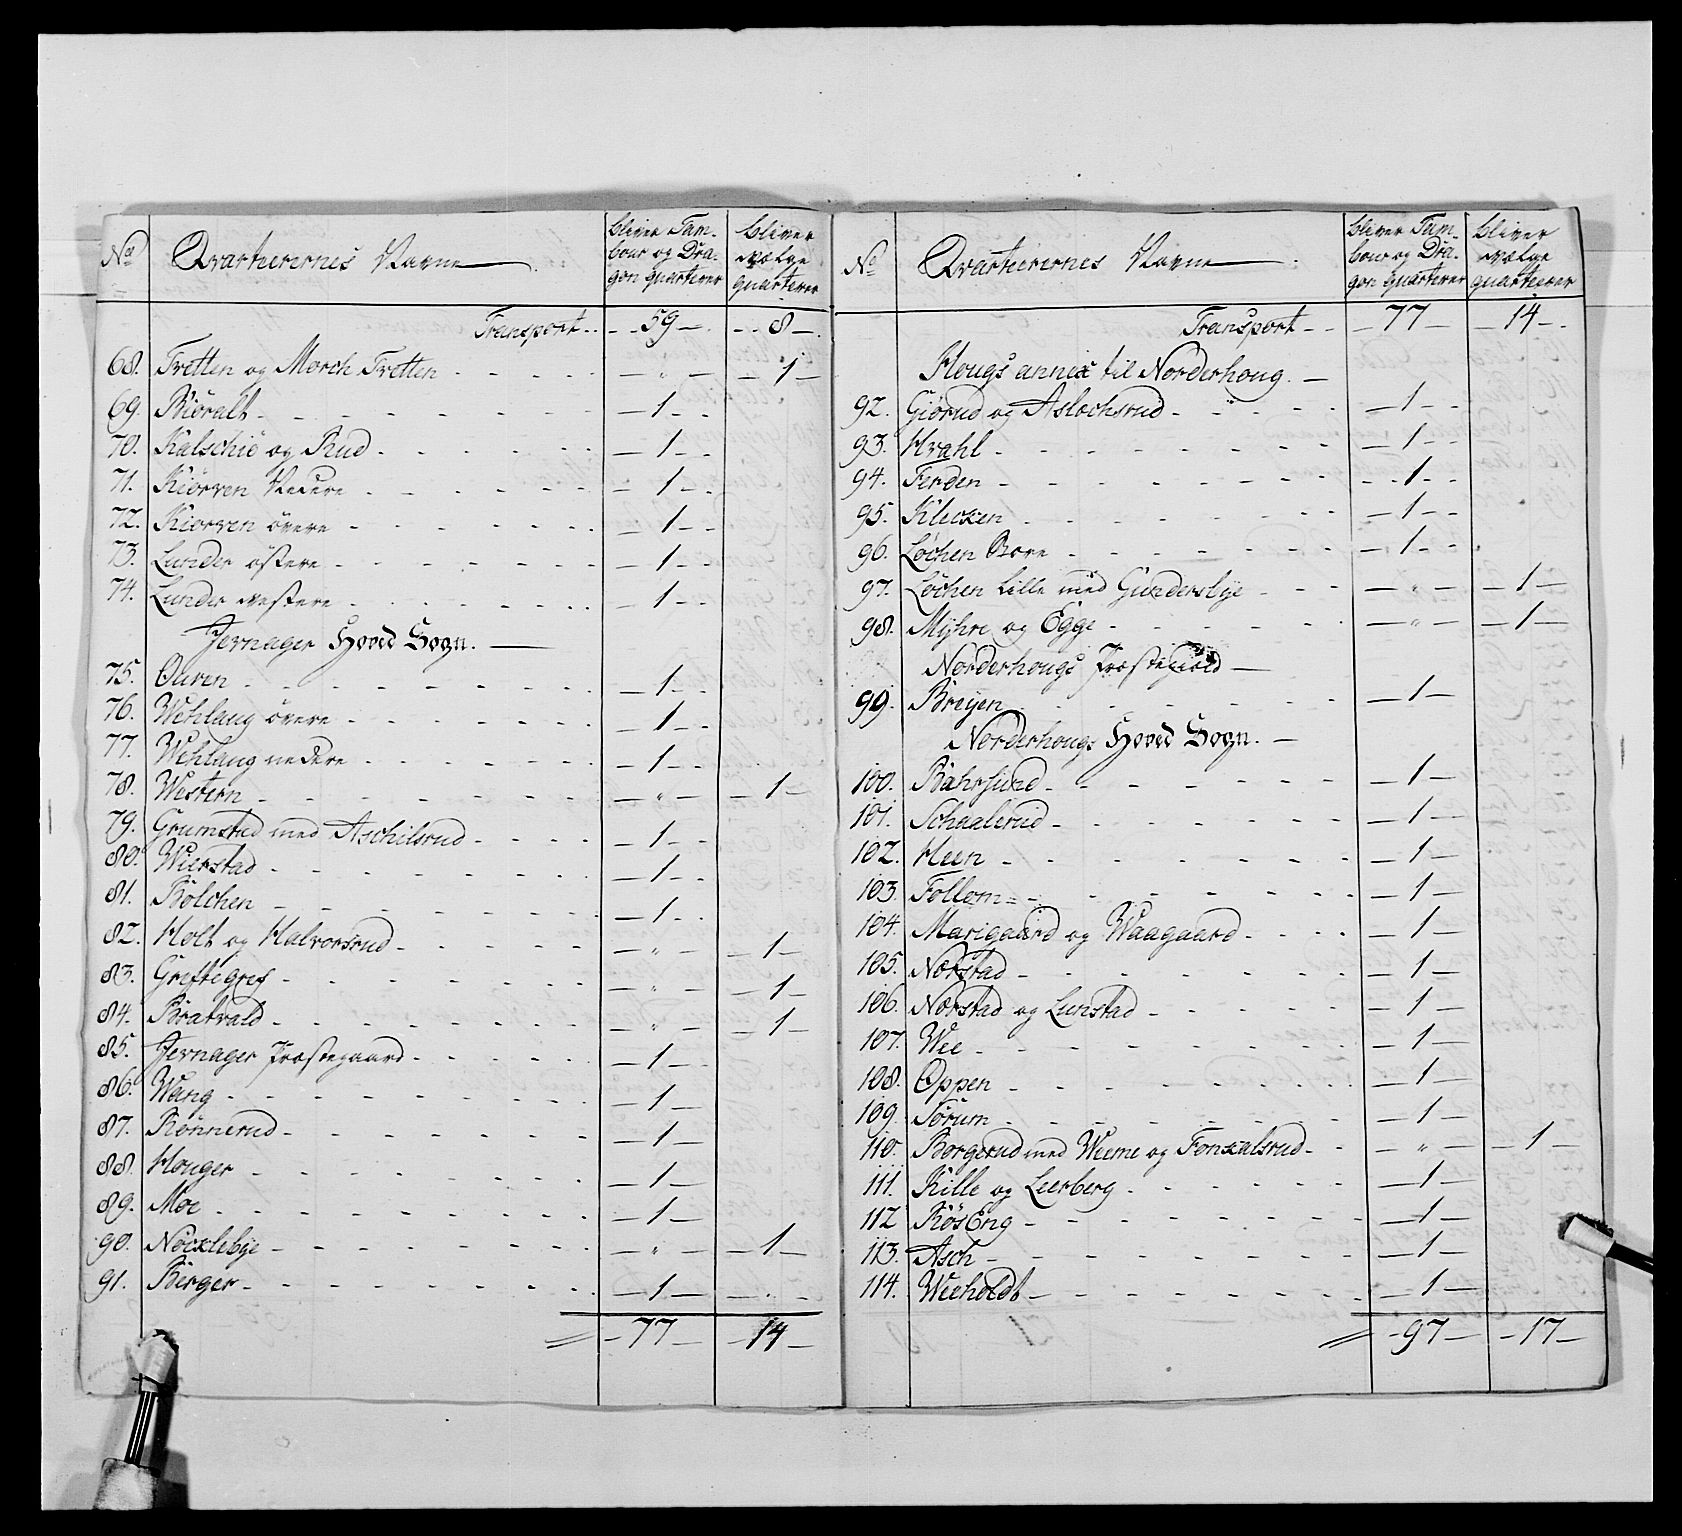 No Qvarteerernes Navne bliver Tam-
bour og Dra-
gon quarterer bliver
væbge
quarterer
Transport 59 8
68. Tretten og Morch Tretten " 1
69. Biöralt 1
70. Kalschie og Rud 1
71. Kiörven Nedere 1
72. Kiorven övere 1
73. Lunder östere 1
74. Lunder vestere 1
Jevnager Hoved Sogn.
75. Ouren 1
76. Wehlang övere 1
77. Wehlang nedere 1
78. Western " 1
79. Grumstad med Aschilsrud 1
80. Wierstad 1
81. Bölchen 1
82. Holt og Halvorsrud " 1
83. Greftegref " 1
84. Bratvald " 1
85. Jevnager Præstegaard 1
86. Wang 1
87. Rönnerud 1
88. Houger 1
89. Moe 1
90. Nöcklebye " 1
91. Berger 1
77 14
No Qvarteerernes Navne bliver Tam-
bour og Dra-
gon quarterer bliver
quarteerer
Transport 77 14
Hougs annex til Norderhoug.
92. Giörud og Aslachsrud 1
93. Hvahl 1
94. Ferden 1
95. Klecken 1
96. Löchen Store 1
97. Löchen Lille med Gundersbye " 1
98. Mÿhre og Egge " 1
Norderhougs Præstegield
99. Breÿen 1
Norderhougs Hoved Sogn.
100. Bahrsund 1
101. Schaalerud 1
102. Heen 1
103. Follom 1
104. Marigaard og Waagaard 1
105. Nærstad 1
106. Nærstad og Lunstad 1
107. Wee 1
108. Oppen 1
109. Sörum 1
110. Borgerud med Weeme og Fonkalsrud " 1
111. Kille og Leerberg 1
112 Rös Eng 1
113. Asch 1
114. Weeholdt 1
97 17